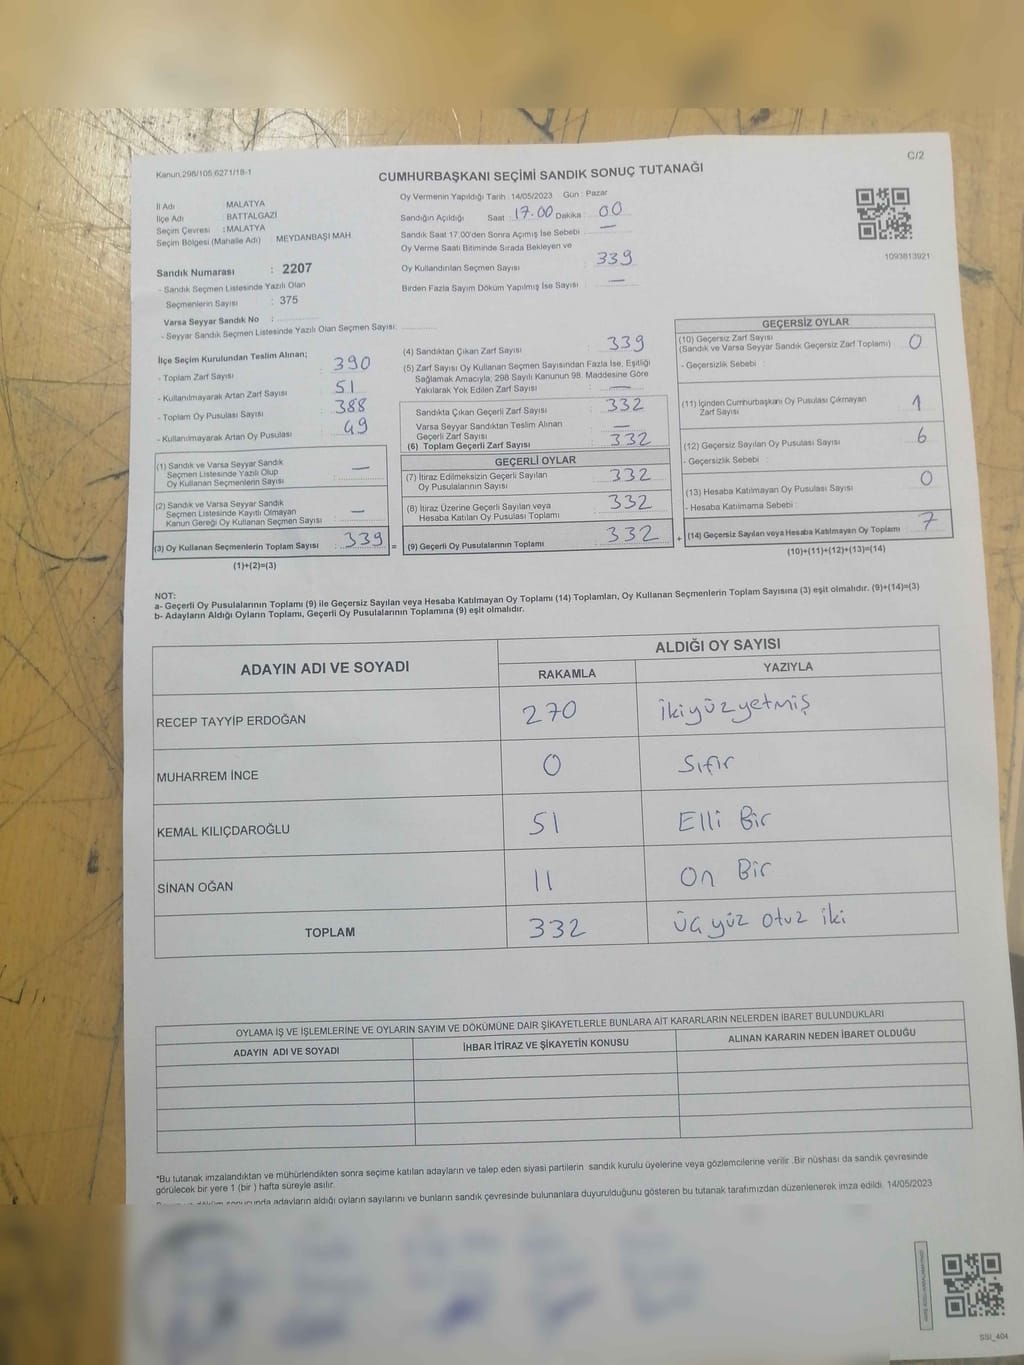 C/2
Kanun,298/105,6271/18-1
CUMHURBAŞKANI SEÇİMİ SANDIK SONUÇ TUTANAĞI
İl Adı : MALATYA
İlçe Adı : BATTALGAZİ
Seçim Çevresi : MALATYA
Seçim Bölgesi (Mahalle Adı) : MEYDANBAŞI MAH.
Oy Vermenin Yapıldığı Tarih : 14/05/2023 Gün : Pazar
Sandığın Açıldığı Saat : 17.00 Dakika : 00
Sandık Saat 17:00'den Sonra Açımış İse Sebebi : —
Oy Verme Saati Bitiminde Sırada Bekleyen ve
Oy Kullandırılan Seçmen Sayısı : 339
Birden Fazla Sayım Döküm Yapılmış İse Sayısı : —
1093813921
Sandık Numarası : 2207
- Sandık Seçmen Listesinde Yazılı Olan
Seçmenlerin Sayısı : 375
Varsa Seyyar Sandık No :
- Seyyar Sandık Seçmen Listesinde Yazılı Olan Seçmen Sayısı:
İlçe Seçim Kurulundan Teslim Alınan;
- Toplam Zarf Sayısı : 390
- Kullanılmayarak Artan Zarf Sayısı : 51
- Toplam Oy Pusulası Sayısı : 388
- Kullanılmayarak Artan Oy Pusulası : 49
(1) Sandık ve Varsa Seyyar Sandık
Seçmen Listesinde Yazılı Olup
Oy Kullanan Seçmenlerin Sayısı : —
(2) Sandık ve Varsa Seyyar Sandık
Seçmen Listesinde Kayıtlı Olmayan
Kanun Gereği Oy Kullanan Seçmen Sayısı : —
(3) Oy Kullanan Seçmenlerin Toplam Sayısı : 339 =
(1)+(2)=(3)
(4) Sandıktan Çıkan Zarf Sayısı : 339
(5) Zarf Sayısı Oy Kullanan Seçmen Sayısından Fazla İse, Eşitliği
Sağlamak Amacıyla; 298 Sayılı Kanunun 98. Maddesine Göre
Yakılarak Yok Edilen Zarf Sayısı : —
Sandıkta Çıkan Geçerli Zarf Sayısı : 332
Varsa Seyyar Sandıktan Teslim Alınan
Geçerli Zarf Sayısı : —
(6) Toplam Geçerli Zarf Sayısı : 332
GEÇERLİ OYLAR
(7) İtiraz Edilmeksizin Geçerli Sayılan
Oy Pusulalarının Sayısı : 332
(8) İtiraz Üzerine Geçerli Sayılan veya
Hesaba Katılan Oy Pusulası Toplamı : 332
(9) Geçerli Oy Pusulalarının Toplamı : 332 +
GEÇERSİZ OYLAR
(10) Geçersiz Zarf Sayısı
(Sandık ve Varsa Seyyar Sandık Geçersiz Zarf Toplamı) : 0
- Geçersizlik Sebebi :
(11) İçinden Cumhurbaşkanı Oy Pusulası Çıkmayan
Zarf Sayısı : 1
(12) Geçersiz Sayılan Oy Pusulası Sayısı : 6
- Geçersizlik Sebebi :
(13) Hesaba Katılmayan Oy Pusulası Sayısı : 0
- Hesaba Katılmama Sebebi :
(14) Geçersiz Sayılan veya Hesaba Katılmayan Oy Toplamı : 7
(10)+(11)+(12)+(13)=(14)
NOT:
a- Geçerli Oy Pusulalarının Toplamı (9) ile Geçersiz Sayılan veya Hesaba Katılmayan Oy Toplamı (14) Toplamları, Oy Kullanan Seçmenlerin Toplam Sayısına (3) eşit olmalıdır. (9)+(14)=(3)
b- Adayların Aldığı Oyların Toplamı, Geçerli Oy Pusulalarının Toplamına (9) eşit olmalıdır.
ADAYIN ADI VE SOYADI ALDIĞI OY SAYISI
RAKAMLA YAZIYLA
RECEP TAYYİP ERDOĞAN 270 ikiyüzyetmiş
MUHARREM İNCE 0 Sıfır
KEMAL KILIÇDAROĞLU 51 Elli Bir
SİNAN OĞAN 11 On Bir
TOPLAM 332 üç yüz otuz iki
OYLAMA İŞ VE İŞLEMLERİNE VE OYLARIN SAYIM VE DÖKÜMÜNE DAİR ŞİKAYETLERLE BUNLARA AİT KARARLARIN NELERDEN İBARET BULUNDUKLARI
ADAYIN ADI VE SOYADI İHBAR İTİRAZ VE ŞİKAYETİN KONUSU ALINAN KARARIN NEDEN İBARET OLDUĞU
*Bu tutanak imzalandıktan ve mühürlendikten sonra seçime katılan adayların ve talep eden siyasi partilerin sandık kurulu üyelerine veya gözlemcilerine verilir .Bir nüshası da sandık çevresinde
görülecek bir yere 1 (bir ) hafta süreyle asılır.
sonucunda adayların aldığı oyların sayılarını ve bunların sandık çevresinde bulunanlara duyurulduğunu gösteren bu tutanak tarafımızdan düzenlenerek imza edildi. 14/05/2023
SSI_404